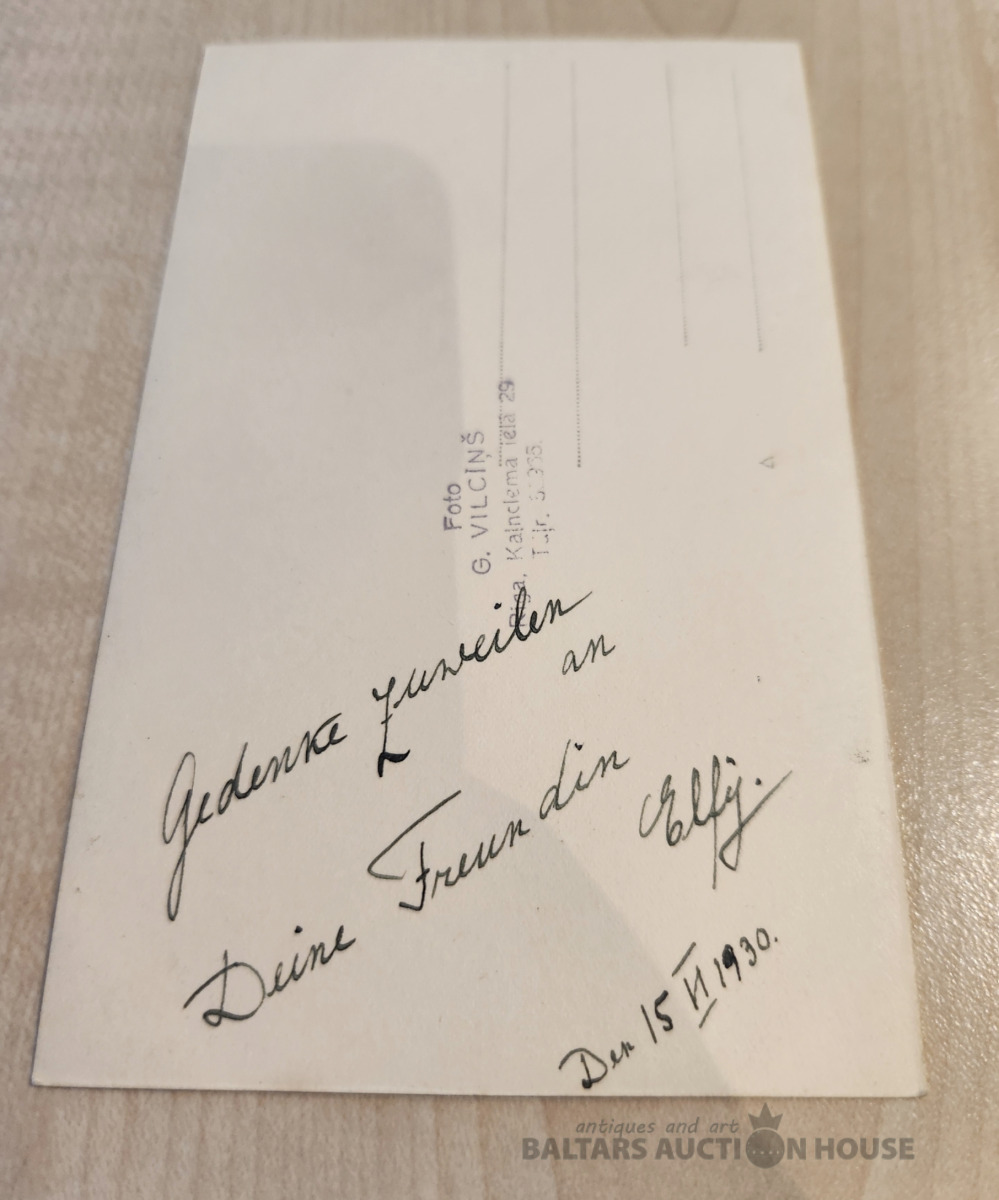 Foto
G. VILCIŅŠ
Rīga, Kalnciema ielā 29
Gedenke zuweilen
an
Deine Freundin
Elfy.
Den 15 VI 1930.
antiques and art
BALTARS AUCTION HOUSE